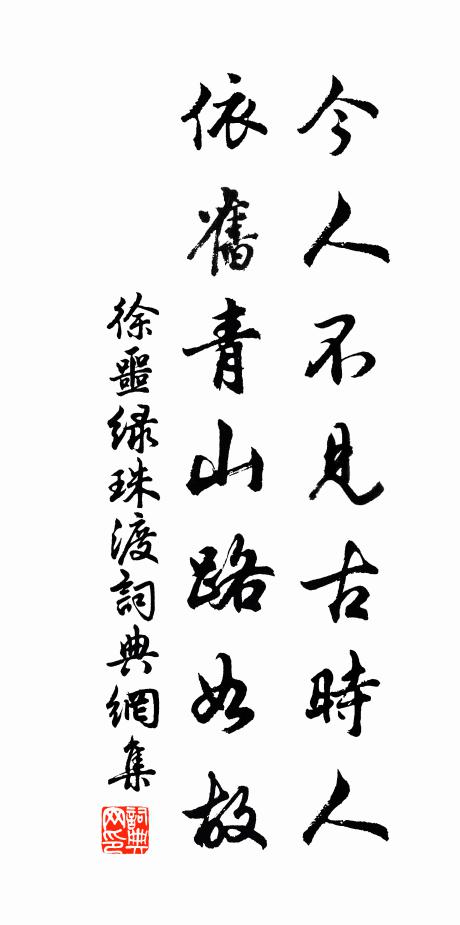 今人不見古時人
依舊青山路如故
徐噩綠珠渡詞典網集
詞典網印